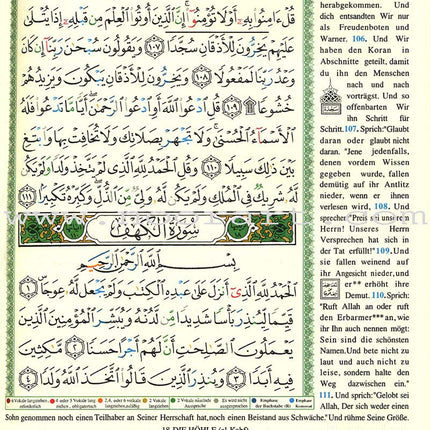 قُلْ ءَامِنُوا۟ بِهِۦٓ أَوْ لَا تُؤْمِنُوٓا۟ إِنَّ ٱلَّذِينَ أُوتُوا۟ ٱلْعِلْمَ مِن قَبْلِهِۦٓ إِذَا يُتْلَىٰ
عَلَيْهِمْ يَخِرُّونَ لِلْأَذْقَانِ سُجَّدًا ١٠٧ وَيَقُولُونَ سُبْحَٰنَ رَبِّنَآ إِن كَانَ
وَعْدُ رَبِّنَا لَمَفْعُولًا ١٠٨ وَيَخِرُّونَ لِلْأَذْقَانِ يَبْكُونَ وَيَزِيدُهُمْ
خُشُوعًا ١٠٩ قُلِ ٱدْعُوا۟ ٱللَّهَ أَوِ ٱدْعُوا۟ ٱلرَّحْمَٰنَ أَيًّا مَّا تَدْعُوا۟ فَلَهُ
ٱلْأَسْمَآءُ ٱلْحُسْنَىٰ وَلَا تَجْهَرْ بِصَلَاتِكَ وَلَا تُخَافِتْ بِهَا وَٱبْتَغِ
بَيْنَ ذَٰلِكَ سَبِيلًا ١١٠ وَقُلِ ٱلْحَمْدُ لِلَّهِ ٱلَّذِى لَمْ يَتَّخِذْ وَلَدًا وَلَمْ يَكُن
لَّهُۥ شَرِيكٌ فِى ٱلْمُلْكِ وَلَمْ يَكُن لَّهُۥ وَلِىٌّ مِّنَ ٱلذُّلِّ وَكَبِّرْهُ تَكْبِيرًۢا ١١١
سُورَةُ الكَهْفِ
بِسْمِ ٱللَّهِ ٱلرَّحْمَٰنِ ٱلرَّحِيمِ
ٱلْحَمْدُ لِلَّهِ ٱلَّذِىٓ أَنزَلَ عَلَىٰ عَبْدِهِ ٱلْكِتَٰبَ وَلَمْ يَجْعَل لَّهُۥ عِوَجَا ١
قَيِّمًا لِّيُنذِرَ بَأْسًا شَدِيدًا مِّن لَّدُنْهُ وَيُبَشِّرَ ٱلْمُؤْمِنِينَ ٱلَّذِينَ
يَعْمَلُونَ ٱلصَّٰلِحَٰتِ أَنَّ لَهُمْ أَجْرًا حَسَنًا ٢ مَّٰكِثِينَ
فِيهِ أَبَدًا ٣ وَيُنذِرَ ٱلَّذِينَ قَالُوا۟ ٱتَّخَذَ ٱللَّهُ وَلَدًا
herabgekommen. Und
dich entsandten Wir nur
als Freudenboten und
Warner. 106. Und Wir
haben den Koran in
Abschnitte geteilt, damit
du ihn den Menschen
nach und nach
vorträgst. Und so
offenbarten Wir
ihn Schritt für
Schritt.107. Sprich:"Glaubt
daran oder glaubt nicht
daran. "Jene jedenfalls,
denen vordem Wissen
gegeben wurde, fallen
demütig auf ihr Antlitz
nieder, wenn er ihnen
verlesen wird, 108. Und
sprechen:"Preis sei unserm
Herrn! Unseres Herrn
Versprechen hat sich in
der Tat erfüllt!"109. Und
sie fallen weinend auf
ihr Angesicht nieder,und
er** erhöht ihre
Demut. 110. Sprich:
"Ruft Allah an oder ruft
den Erbarmer***an, wie
ihr Ihn auch nennen mögt:
Sein sind die schönsten
Namen.Und bete nicht zu
laut und auch nicht zu
leise, sondern halte den
Weg dazwischen ein."
111. Und sprich:"Gelobt sei
Allah, Der sich weder einen
Sohn genommen noch einen Teilhaber an Seiner Herrschaft hat,noch einen Beistand aus Schwäche."Und rühme Seine Größe.
18-DIE HÖHLE (al-Kahf)